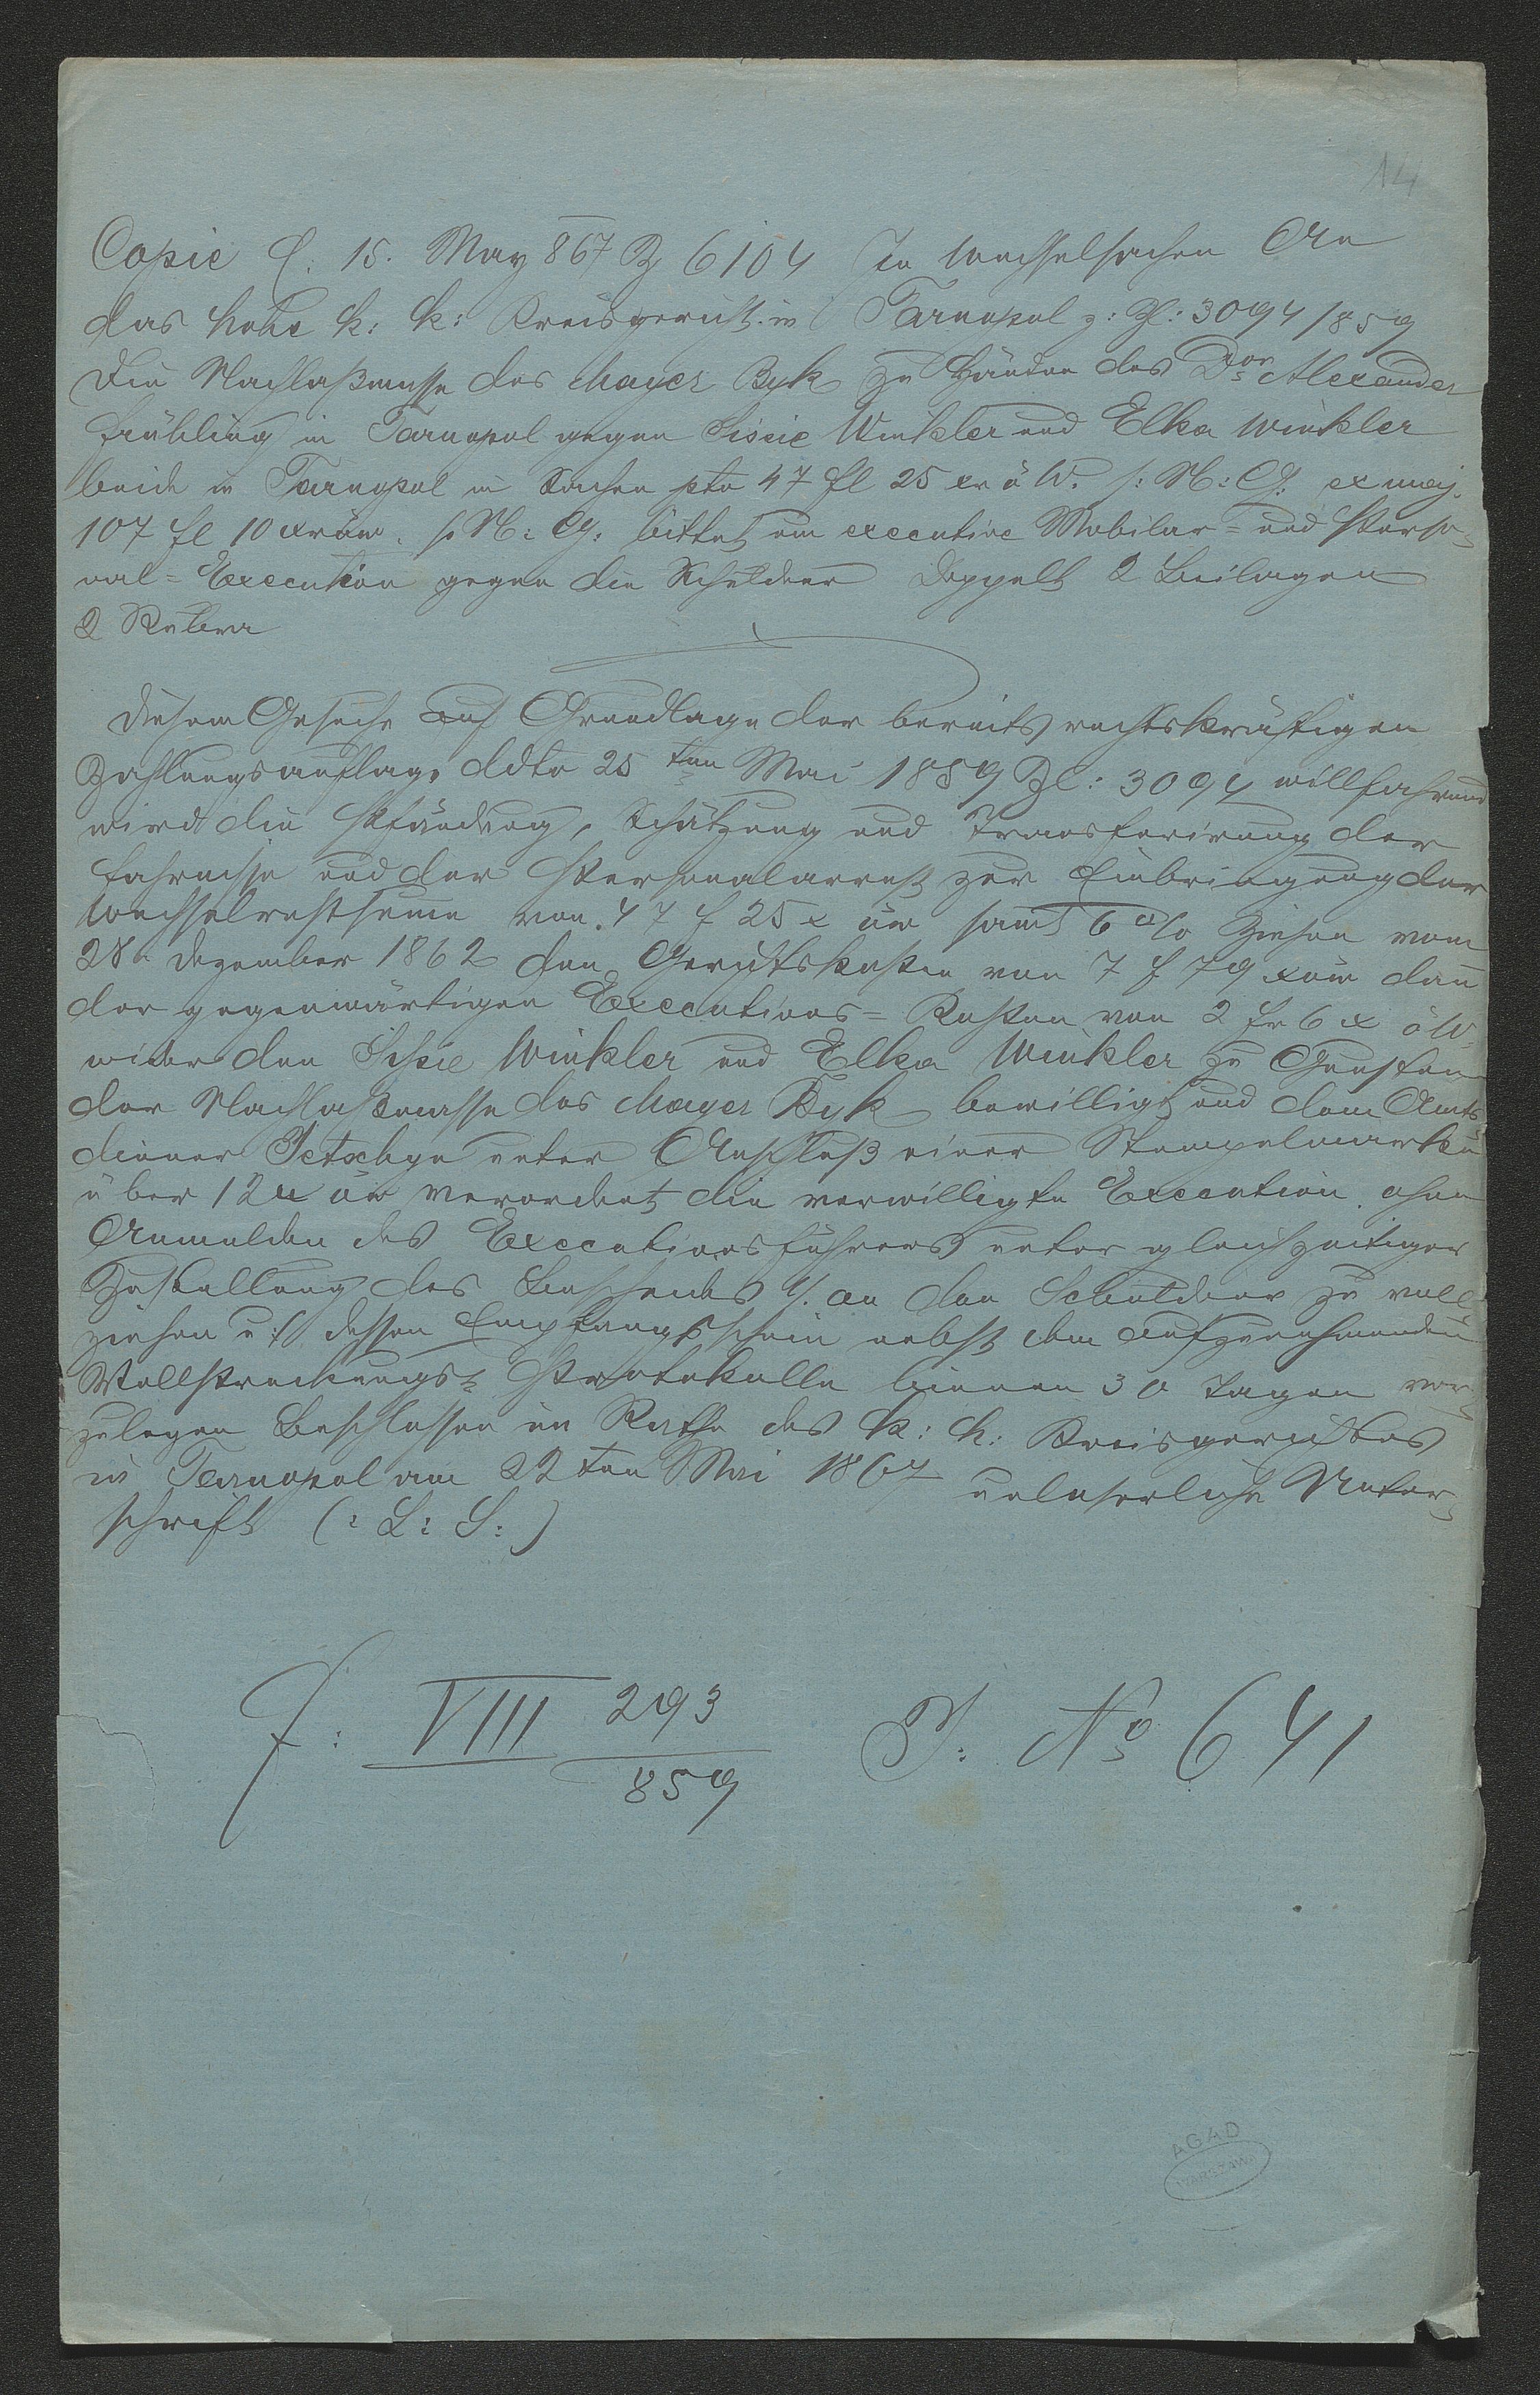 14
Copie 15. May 867 Z 6104 In Wechselsachen An
das hohe k: k: Kreisgericht in Tarnopol z: Zl: 3094/859
Die Nachlaßmasse des Mayer Byk zu Händen des Dor Alexander
Frühling in Tarnopol gegen Sissie Winkler und Elka Winkler
beide in Tarnopol in Sachen pto 47 fl 25 xr öW. s: N: G: ex maj.
107 fl 10 xröw. s N: G: bittet um executive Mobilar= und Perso¬
nal=Execution gegen die Schuldner Doppelt 2 Beilagen
2 Rubra
Diesem Gesuche auf Grundlage der bereits rechtskräftigen
Zahlungsauflage ddto 25ten Mai 1859 Zl: 3094 willfahrend
wird die Pfändung, Schätzung und Transferirung der
Fahrnisse und der Personalarrest zur Einbringung der
Wechselrestsumme von 47 f 25 x öw samt 6 % Zinsen vom
28. Dezember 1862 den Gerichtskosten von 7 f 79 xöw dann
der gegenwärtigen Executions=Kosten von 2 fr 6 x öW.
wider den Sissie Winkler und Elka Winkler zu Gunsten
der Nachlaßmasse des Mayer Byk bewilligt und dem Amts
diener unter Anschluß einer Stempelmarke
über 12 x öw verordnet die verwilligte Execution ohne
Anmelden des Executionsführers unter gleichzeitiger
Zustellung des Bescheides an den Schuldner zu voll
ziehen u: dessen Empfangsschein nebst dem aufzunehmenden
Vollstreckungs¬ Protokolle binnen 30 Tagen vor¬
zulegen Beschlossen im Rathe des k: k: Kreisgerichtes
in Tarnopol am 22ten Mai 1867 unleserliche Unter¬
schrift (: L: S:)
F: VIII 293/859 J: No 641
AGAD
WARSZAWA